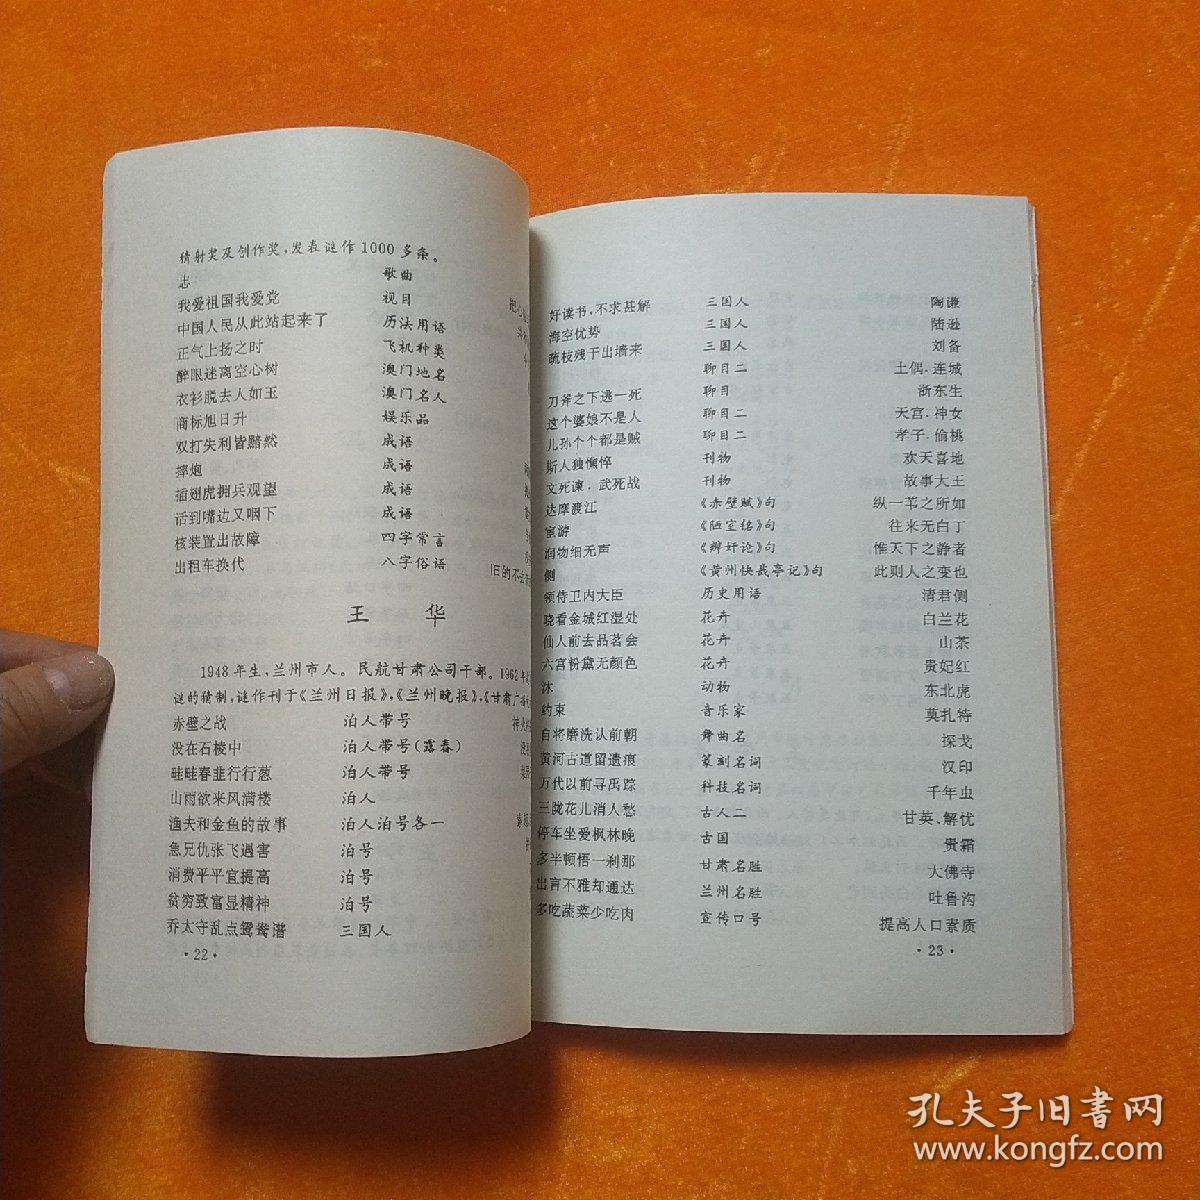 精射奖及创作奖，发表谜作1000多条。
志 歌曲
我爱祖国我爱党 视目
中国人民从此站起来了 历法用语
正气上扬之时 飞机种类
醉眼迷离空心树 澳门地名
衣衫脱去人如玉 澳门名人
商标旭日升 娱乐品
双打失利皆黯然 成语
摔炮 成语
插翅虎拥兵观望 成语
话到嘴边又咽下 成语
核装置出故障 四字常言
出租车换代 八字俗语
王 华
1948年生，兰州市人。民航甘肃公司干部。1962年
谜的猜制，谜作刊于《兰州日报》，《兰州晚报》，《甘肃广
赤壁之战 泊人带号
没在石棱中 泊人带号（露春）
畦畦春韭行行葱 泊人带号
山雨欲来风满楼 泊人
渔夫和金鱼的故事 泊人泊号各一
急兄仇张飞遇害 泊号
消费平平宜提高 泊号
贫穷致富显精神 泊号
乔太守乱点鸳鸯谱 三国人
·22·
好读书，不求甚解 三国人 陶谦
海空优势 三国人 陆逊
疏枝残干出墙来 三国人 刘备
聊目二 土偶．连城
刀斧之下逃一死 聊目 浙东生
这个婆娘不是人 聊目二 天宫．神女
儿孙个个都是贼 聊目二 孝子．偷桃
斯人独憔悴 刊物 欢天喜地
文死谏．武死战 刊物 故事大王
达摩渡江 《赤壁赋》句 纵一苇之所如
宦游 《陋室铭》句 往来无白丁
润物细无声 《辩奸论》句 惟天下之静者
侧 《黄州快哉亭记》句 此则人之变也
领侍卫内大臣 历史用语 清君侧
晓看金城红湿处 花卉 白兰花
仙人前去品茗会 花卉 山茶
六宫粉黛无颜色 花卉 贵妃红
沐 动物 东北虎
约束 音乐家 莫扎特
自将磨洗认前朝 舞曲名 探戈
黄河古道留遗痕 篆刻名词 汉印
万代以前寻禹踪 科技名词 千年虫
三陇花儿消人愁 古人二 甘英．解忧
停车坐爱枫林晚 古国 贵霜
多半顿悟一刹那 甘肃名胜 大佛寺
出言不雅却通达 兰州名胜 吐鲁沟
多吃蔬菜少吃肉 宣传口号 提高人口素质
·23·
孔夫子旧书网
www.kongfz.com